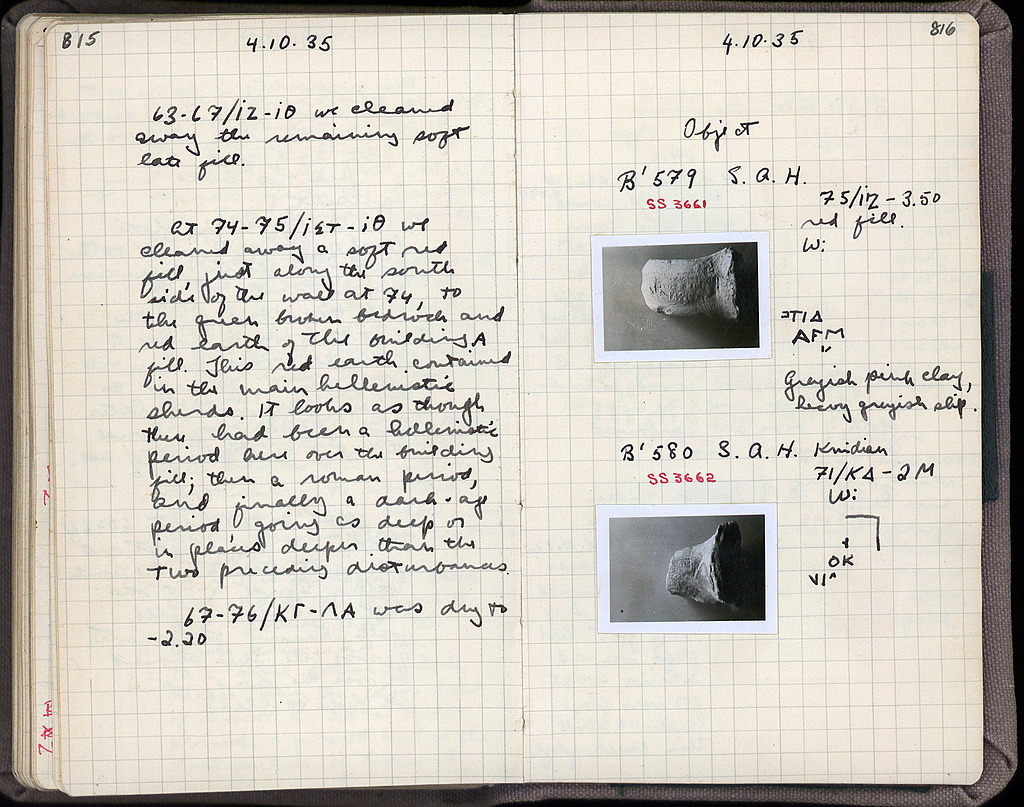 815
4.10.35
63-67/ΙΖ-ΙΘ we cleaned
away the remaining soft
late fill.
At 74-75/ΙΣΤ-ΙΘ we
cleaned away a soft red
fill, just along the south
side of the wall at 74, to
the green broken bedrock and
red earth of the building A
fill. This red earth contained
in the main hellenistic
sherds. It looks as though
there had been a hellenistic
period here over the building
fill; then a roman period,
and finally a dark-age
period going as deep or
in places deeper than the
two preceding disturbances.
67-76/ΚΓ-ΛΑ was dug to
-2.20
816
4.10.35
Object
B'579 S.A.H.
SS 3661
75/ΙΖ-3.50
red fill.
W:
ΤΙΔ
ΑΓΜ
Greyish pink clay,
heavy greyish slip.
B'580 S.A.H. Knidian
SS 3662
71/ΚΔ-2M
W:
ΟΚ